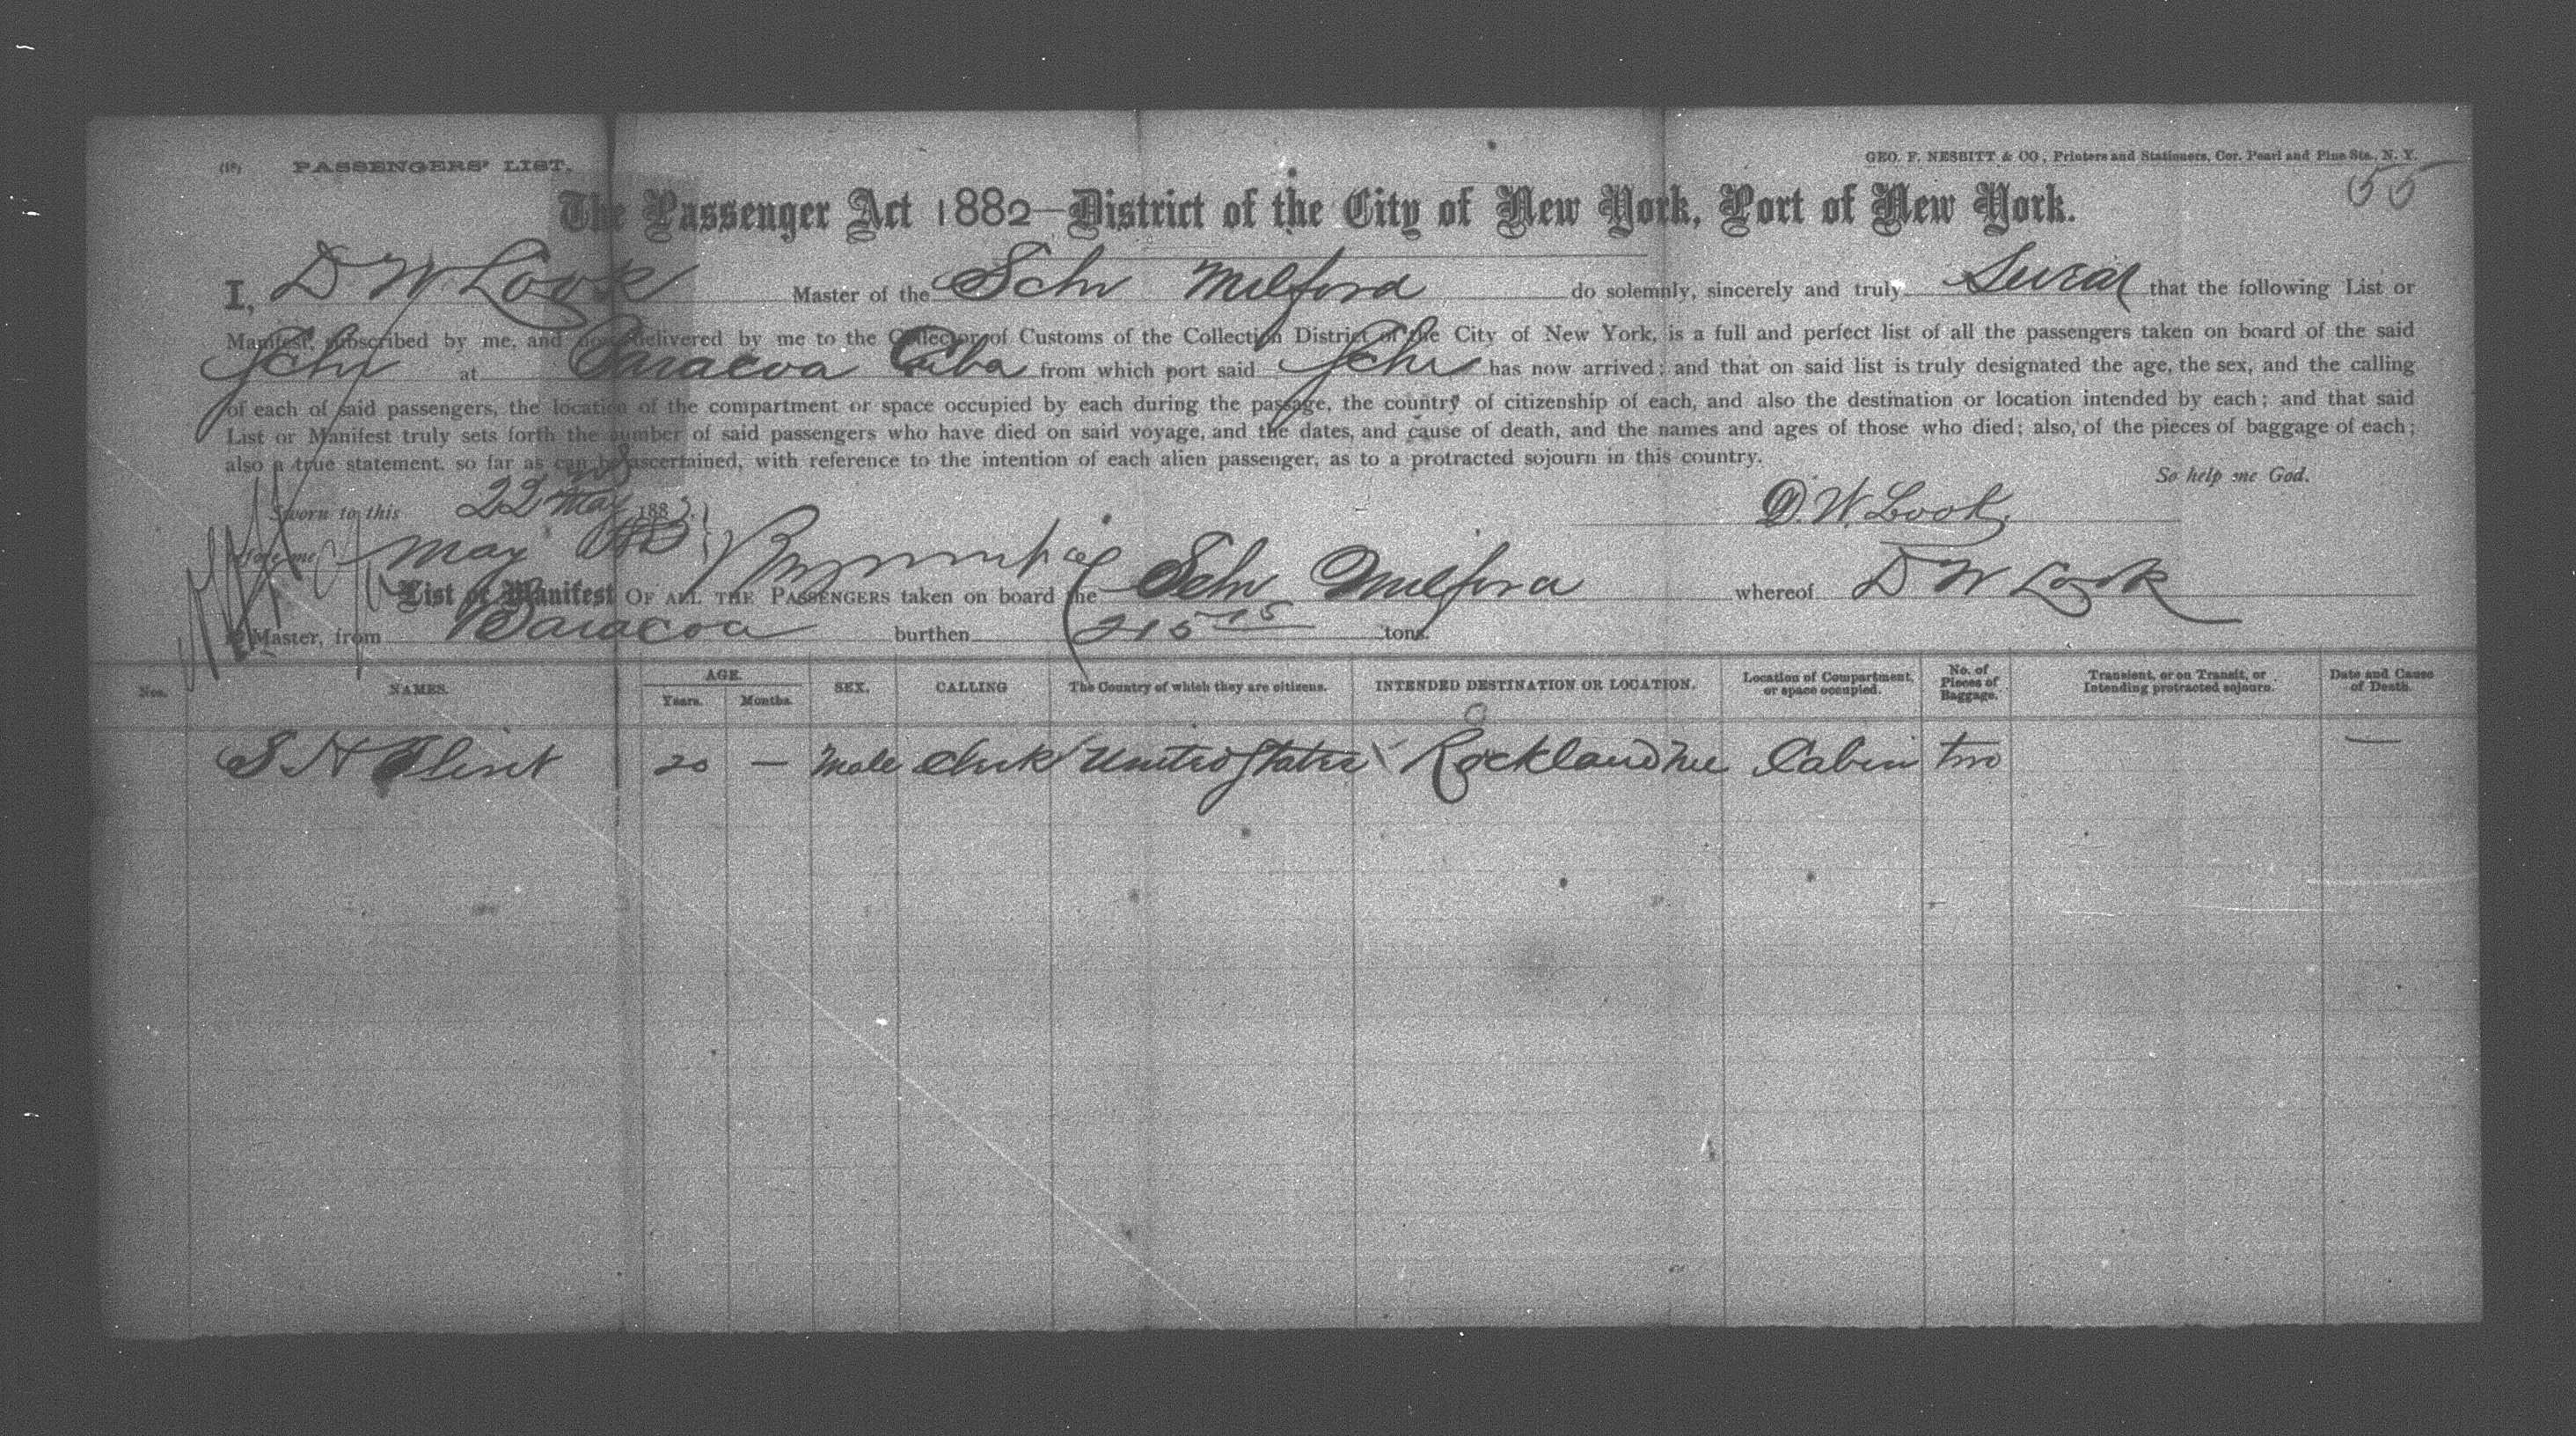 (18) PASSENGERS' LIST.
GEO. F. NESBITT & CO., Printers and Stationers, Cor. Pearl and Pine Sts., N. Y.
55
The Passenger Act 1882—District of the City of New York, Port of New York.
I, D W Look Master of the Schr Milford do solemnly, sincerely and truly Swear that the following List or
Manifest, subscribed by me, and now delivered by me to the Collector of Customs of the Collection District of the City of New York, is a full and perfect list of all the passengers taken on board of the said
Schr at Baracoa Cuba from which port said Schr has now arrived; and that on said list is truly designated the age, the sex, and the calling
of each of said passengers, the location of the compartment or space occupied by each during the passage, the country of citizenship of each, and also the destination or location intended by each; and that said
List or Manifest truly sets forth the number of said passengers who have died on said voyage, and the dates, and cause of death, and the names and ages of those who died; also, of the pieces of baggage of each;
also a true statement, so far as can be ascertained, with reference to the intention of each alien passenger, as to a protracted sojourn in this country.
So help me God.
Sworn to this 22 May 188
D. W. Look
before me May
List or Manifest OF ALL THE PASSENGERS taken on board the Schr Milford whereof D W Look
is Master, from Baracoa burthen 215 15 tons.
Nos. NAMES. AGE. Years. Months. SEX. CALLING The Country of which they are citizens. INTENDED DESTINATION OR LOCATION. Location of Compartment, or space occupied. No. of Pieces of Baggage. Transient, or on Transit, or Intending protracted sojourn. Date and Cause of Death.
S H Flint 20 — Male Clerk United States Rockland Me Cabin two —